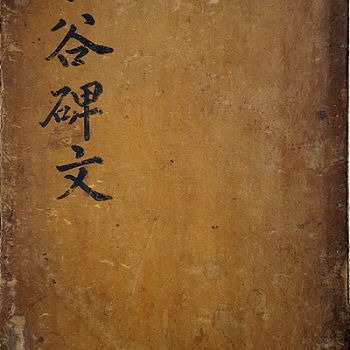 谷碑文